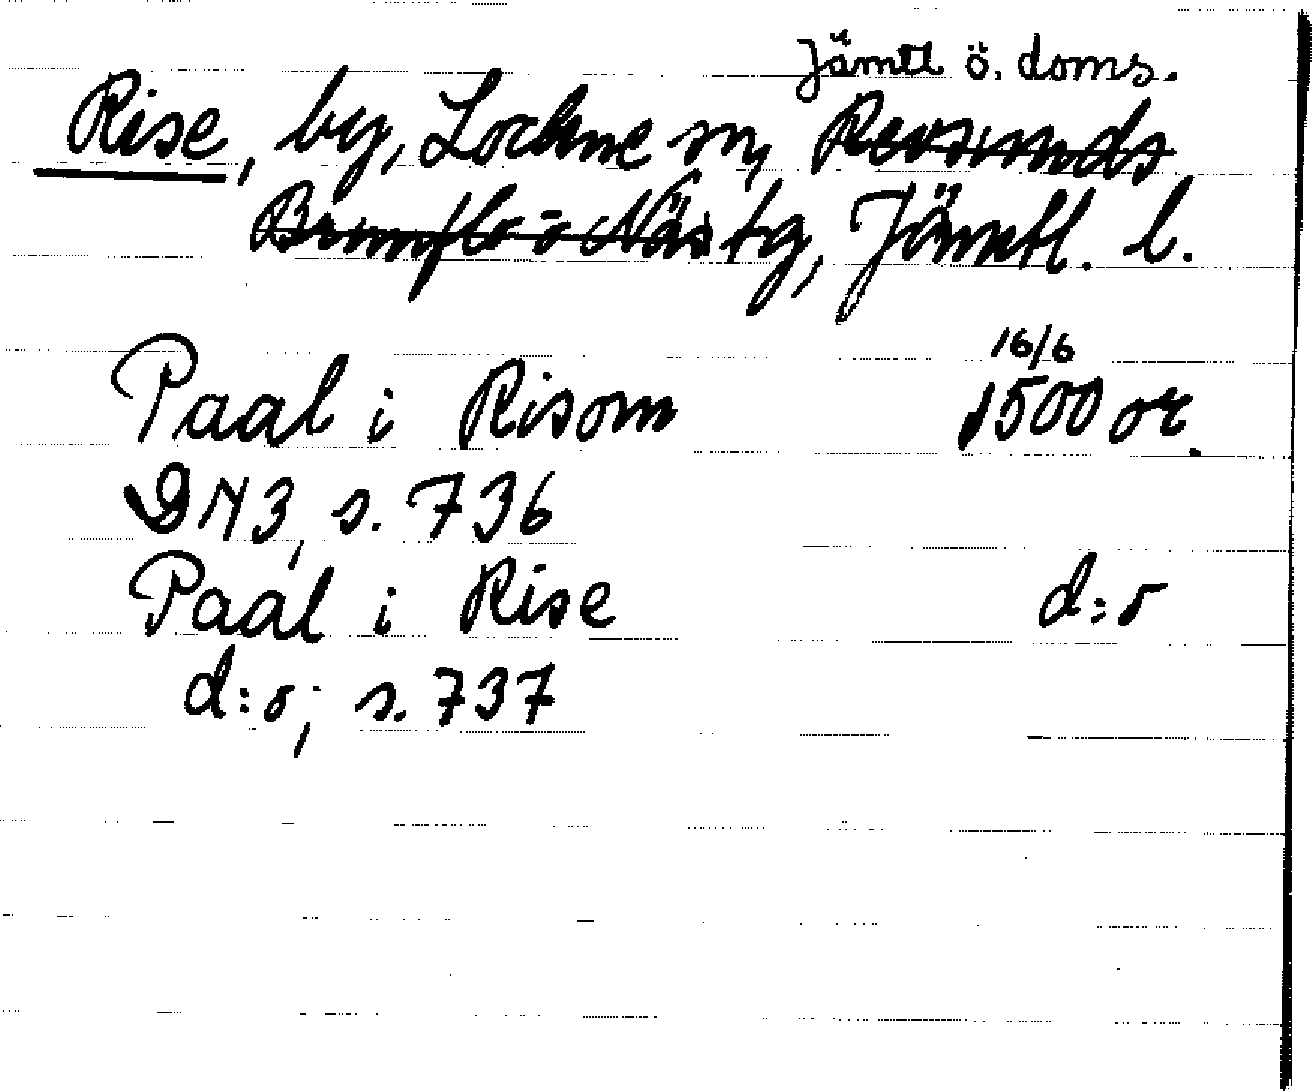 Jämtl ö. doms.
Rise, by, Lockne sn, Revsunds
Brunflo o Näs tg, Jämtl. l.
16/6
Paal i Risom 1500 or.
DN3, s. 736
Paal i Rise d:o
d:o, s. 737